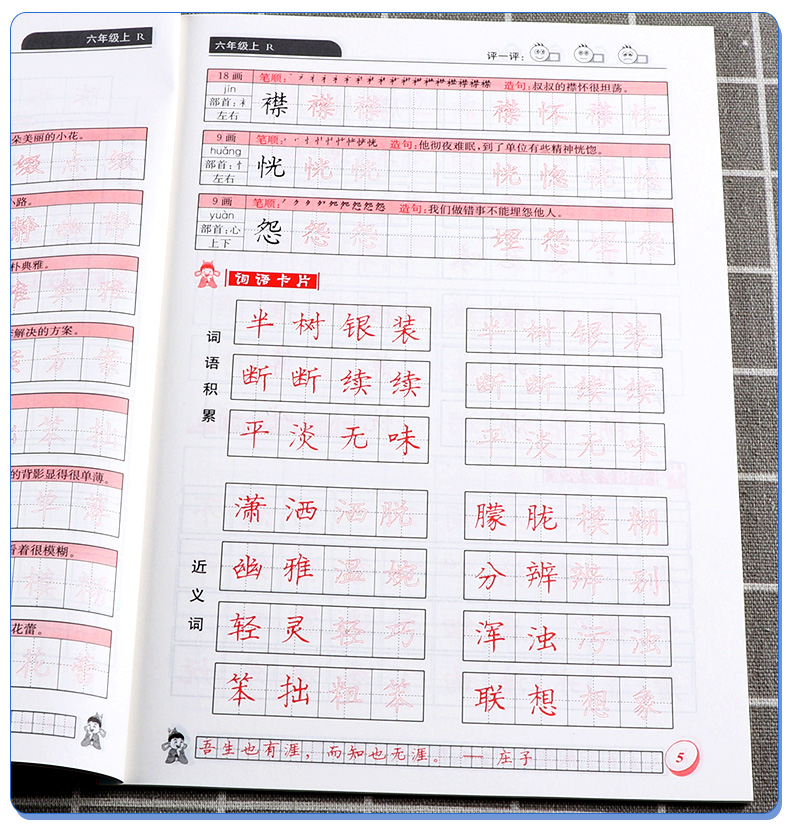 六年级上 R
朵美丽的小花。
小路。
朴典雅。
解决的方案。
的背影显得很单薄。
看着很模糊。
花蕾。
六年级上 R
评一评:
18画 笔顺: 造句:叔叔的襟怀很坦荡。
jīn
部首:衤
左右
襟 襟 襟 襟 怀 襟 怀
9画 笔顺: 造句:他彻夜难眠,到了单位有些精神恍惚。
huǎng
部首:忄
左右
恍 恍 恍 恍 惚 恍 惚
9画 笔顺: 造句:我们做错事不能埋怨他人。
yuàn
部首:心
上下
怨 怨 怨 埋 怨 埋 怨
词语卡片
词语积累
半树银装 半树银装
断断续续 断断续续
平淡无味 平淡无味
近义词
潇洒 洒脱 朦胧 模糊
幽雅 温婉 分辨 辨别
轻灵 轻巧 浑浊 污浊
笨拙 粗笨 联想 想象
吾生也有涯,而知也无涯。——庄子
5